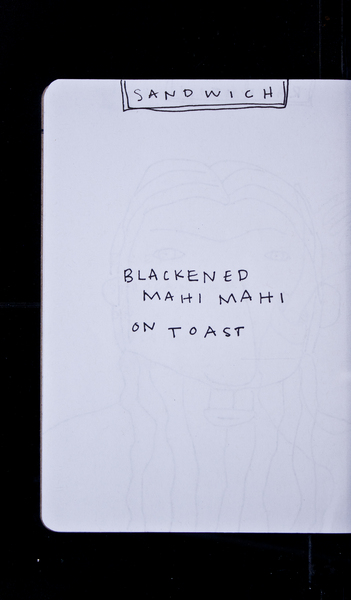 SANDWICH
BLACKENED
MAHI MAHI
ON TOAST